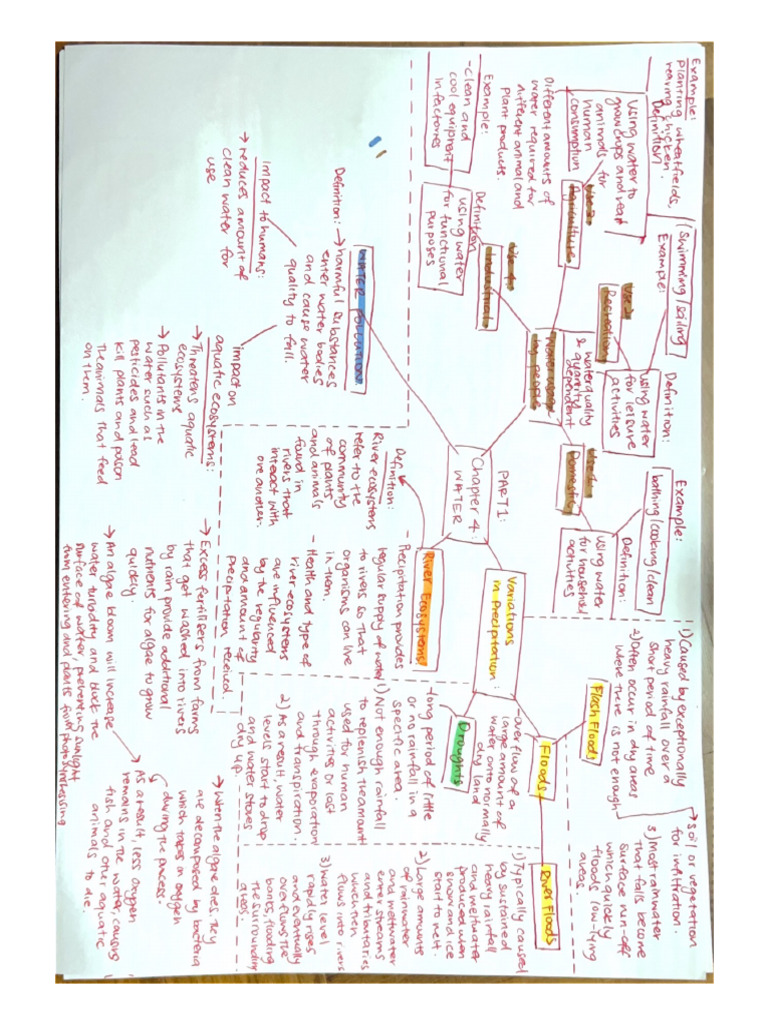 PART 1:
Chapter 4:
WATER
Water usage
by people
water quality
& quantity
dependent
Use 1
Domestic
Definition:
using water
for household
activities
Example:
bathing/cooking/clean
Use 2
Recreation
Definition:
using water
for leisure
activities
Example:
swimming/sailing
Use 3
Agriculture
Definition
Using water to
grow crops and rear
animals for
human
consumption
Example:
planting wheat fields,
rearing chicken.
Different amounts of
water required for
different animal and
plant products.
Use 4
Industrial
Definition
using water
for functional
purposes
Example:
- Clean and
cool equipment
in factories
WATER POLLUTION
Definition: → harmful substances
enter water bodies
and cause water
quality to fall.
Impact to humans:
→ reduces amount of
clean water for
use
impact on
aquatic ecosystems:
→ Threatens aquatic
ecosystems
→ Pollutants in the
water such as
pesticides and lead
kill plants and poison
the animals that feed
on them.
→ Excess fertilisers from farms
that get washed into rivers
by rain provide additional
nutrients for algae to grow
quickly.
→ An algae bloom will increase
water turbidity and block the
surface of water, preventing sunlight
from entering and plants from photosynthesising
→ When the algae dies, they
are decomposed by bacteria
which takes in oxygen
during the process.
As a result, less oxygen
remains in the water, causing
fish and other aquatic
animals to die.
River Ecosystems
Definition:
River ecosystems
refer to the
community
of plants
and animals
found in
rivers that
interact with
one another.
- Precipitation provides
regular supply of water
to rivers so that
organisms can live
in them.
- Health and type of
river ecosystems
are influenced
by the regularity
and amount of
precipitation received
Variations
in Preciptation:
Droughts
- long period of little
or no rainfall in a
specific area.
1) Not enough rainfall
to replenish the amount
used for human
activities or lost
through evaporation
and transpiration.
2) As a result, water
levels start to drop
and water stores
dry up.
Floods
overflow of a
large amount of
water onto normally
dry land
Flash Floods
1) Caused by exceptionally
heavy rainfall over a
short period of time
2) Often occur in dry areas
were there is not enough
→ soil or vegetation
for infiltration.
3) Most rainwater
that falls become
surface run-off
which quickly
floods low-lying
areas.
River Floods
1) Typically caused
by sustained
heavy rainfall
and meltwater
produced when
snow and ice
start to melt.
2) Large amounts
of rainwater
and meltwater
enter streams
and tributaries
which then
flows into rivers
3) Water level
rapidly rises
and eventually
overflows the
banks, flooding
the surrounding
areas.